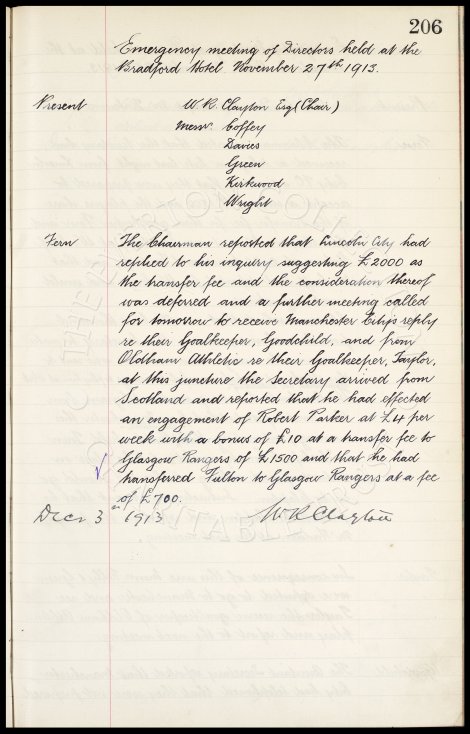 206
Emergency meeting of Directors held at the
Bradford Hotel November 27th 1913.
Present W. R. Clayton Esq (Chair)
Messrs. Coffey
Davies
Green
Kirkwood
Wright
Fern The Chairman reported that Lincoln City had
replied to his inquiry suggesting £2000 as
the transfer fee and the consideration thereof
was deferred and a further meeting called
for tomorrow to receive Manchester Citys reply
re their Goalkeeper, Goodchild, and from
Oldham Athletic re their Goalkeeper, Taylor,
at this juncture the Secretary arrived from
Scotland and reported that he had effected
an engagement of Robert Parker at £4 per
week with a bonus of £10 at a transfer fee to
Glasgow Rangers of £1500 and that he had
transferred Fulton to Glasgow Rangers at a fee
of £700.
Decr 3rd 1913 W R Clayton